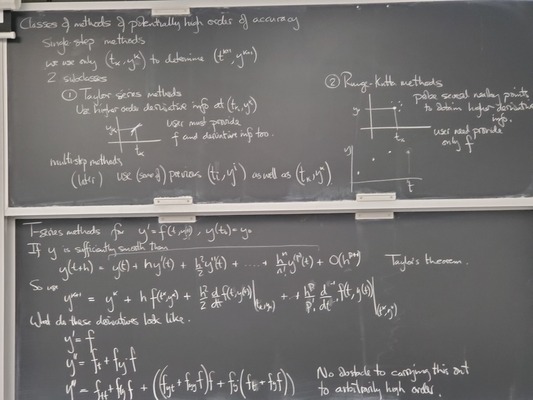 Classes of methods of potentially high order of accuracy
Single-step methods
we use only (t_k, y^k) to determine (t^{k+1}, y^{k+1})
2 subclasses
① Taylor series methods
Use higher order derivative info at (t_k, y^k)
y_k
t_k
user must provide
f and derivative info too.
② Runge-Kutta methods
probe several nearby points
to obtain higher-derivative
info.
user need provide
only f
y^k
t_k
multistep methods
(later) use (some of) previous (t_i, y^i) as well as (t_k, y^k)
y
t
T-series methods for y' = f(t, y(t)), y(t_0) = y_0
If y is sufficiently smooth then
y(t+h) = y(t) + hy'(t) + h²/2 y''(t) + .... + h^p/p! y^{(p)}(t) + O(h^{p+1}) Taylor's theorem.
So use
y^{k+1} = y^k + h f(t^k, y^k) + h²/2 d/dt f(t, y(t))|_{(t_k, y^k)} + ... + h^p/p! d^{p-1}/dt^{p-1} f(t, y(t))|_{(t^k, y^k)}
What do these derivatives look like.
y' = f
y'' = f_t + f_y f
y''' = f_{tt} + f_{ty} f + ((f_{yt} + f_{yy} f) f + f_y (f_t + f_y f))
No obstacle to carrying this out
to arbitrarily high order.